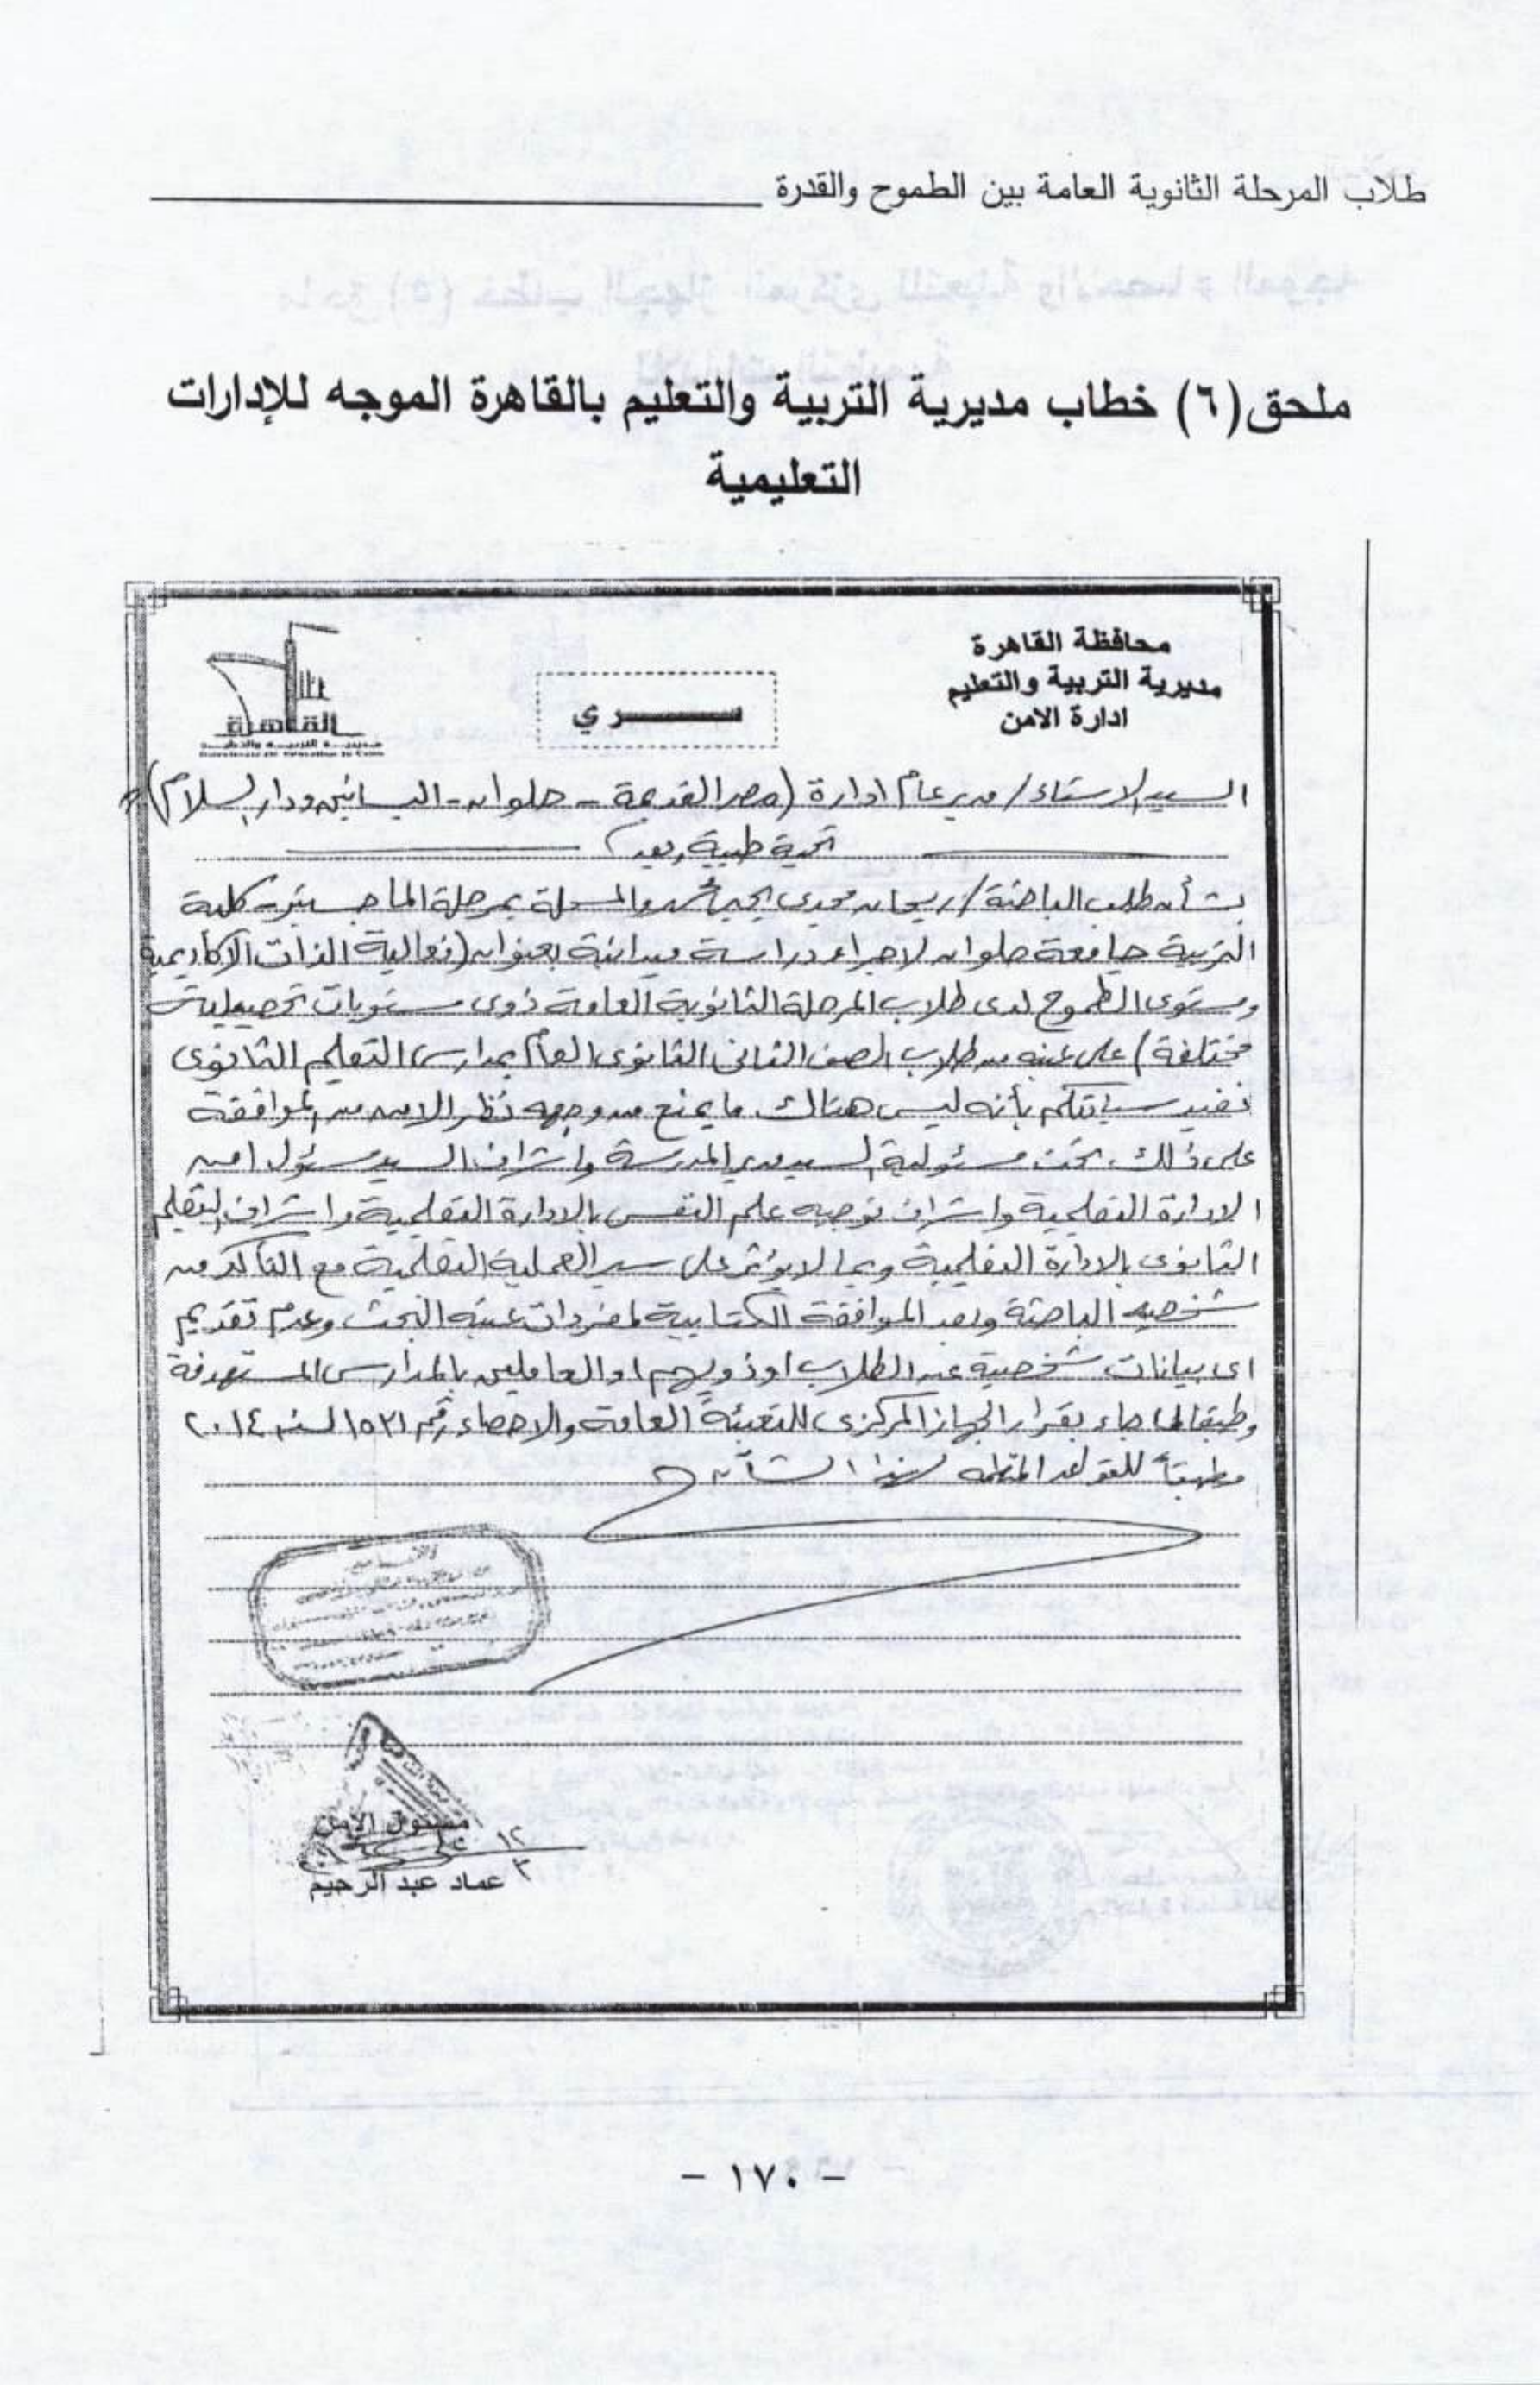 طلاب المرحلة الثانوية العامة بين الطموح والقدرة
ملحق(٦) خطاب مديرية التربية والتعليم بالقاهرة الموجه للإدارات
التعليمية
محافظة القاهرة
مديرية التربية والتعليم
ادارة الامن
ســـــري
القاهرة
السيد الاستاذ/ مدير عام ادارة (مصر القديمة - حلوان - البساتين ودار السلام)
تحية طيبة وبعد
بشأن طلب الباحثة/ ريحان مجدى والمسجلة بمرحلة الماجستير - كلية
التربية جامعة حلوان لاجراء دراسة ميدانية بعنوان (فعالية الذات الاكاديمية
ومستوى الطموح لدى طلاب المرحلة الثانوية العامة ذوى مستويات تحصيلية
مختلفة) على عينه من طلاب الصف الثانى الثانوى العام بمدارس التعليم الثانوى
نفيد سيادتكم بأنه ليس هناك ما يمنع من وجهه نظر الامن من الموافقة
على ذلك تحت مسئولية السيد مدير المدرسة واشراف السيد مسئول امن
الادارة التعليمية واشراف توجيه علم النفس بالادارة التعليمية واشراف التعليم
الثانوى بالادارة التعليمية وبما لا يؤثر على سير العملية التعليمية مع التأكد من
شخصيه الباحثة وبعد الموافقة الكتابية لمفردات عينه البحث وعدم تقديم
اى بيانات شخصية عن الطلاب او ذويهم او العاملين بالمدارس المستهدفة
وطبقا لما جاء بقرار الجهاز المركزى للتعبئة العامة والاحصاء رقم ١٥٢١ لسنه ٢٠١٤
وطبقاً للقواعد المنظمه لهذا الشأن
مسئول الامن
١٢
٣
عماد عبد الرحيم
- ١٧٠ -